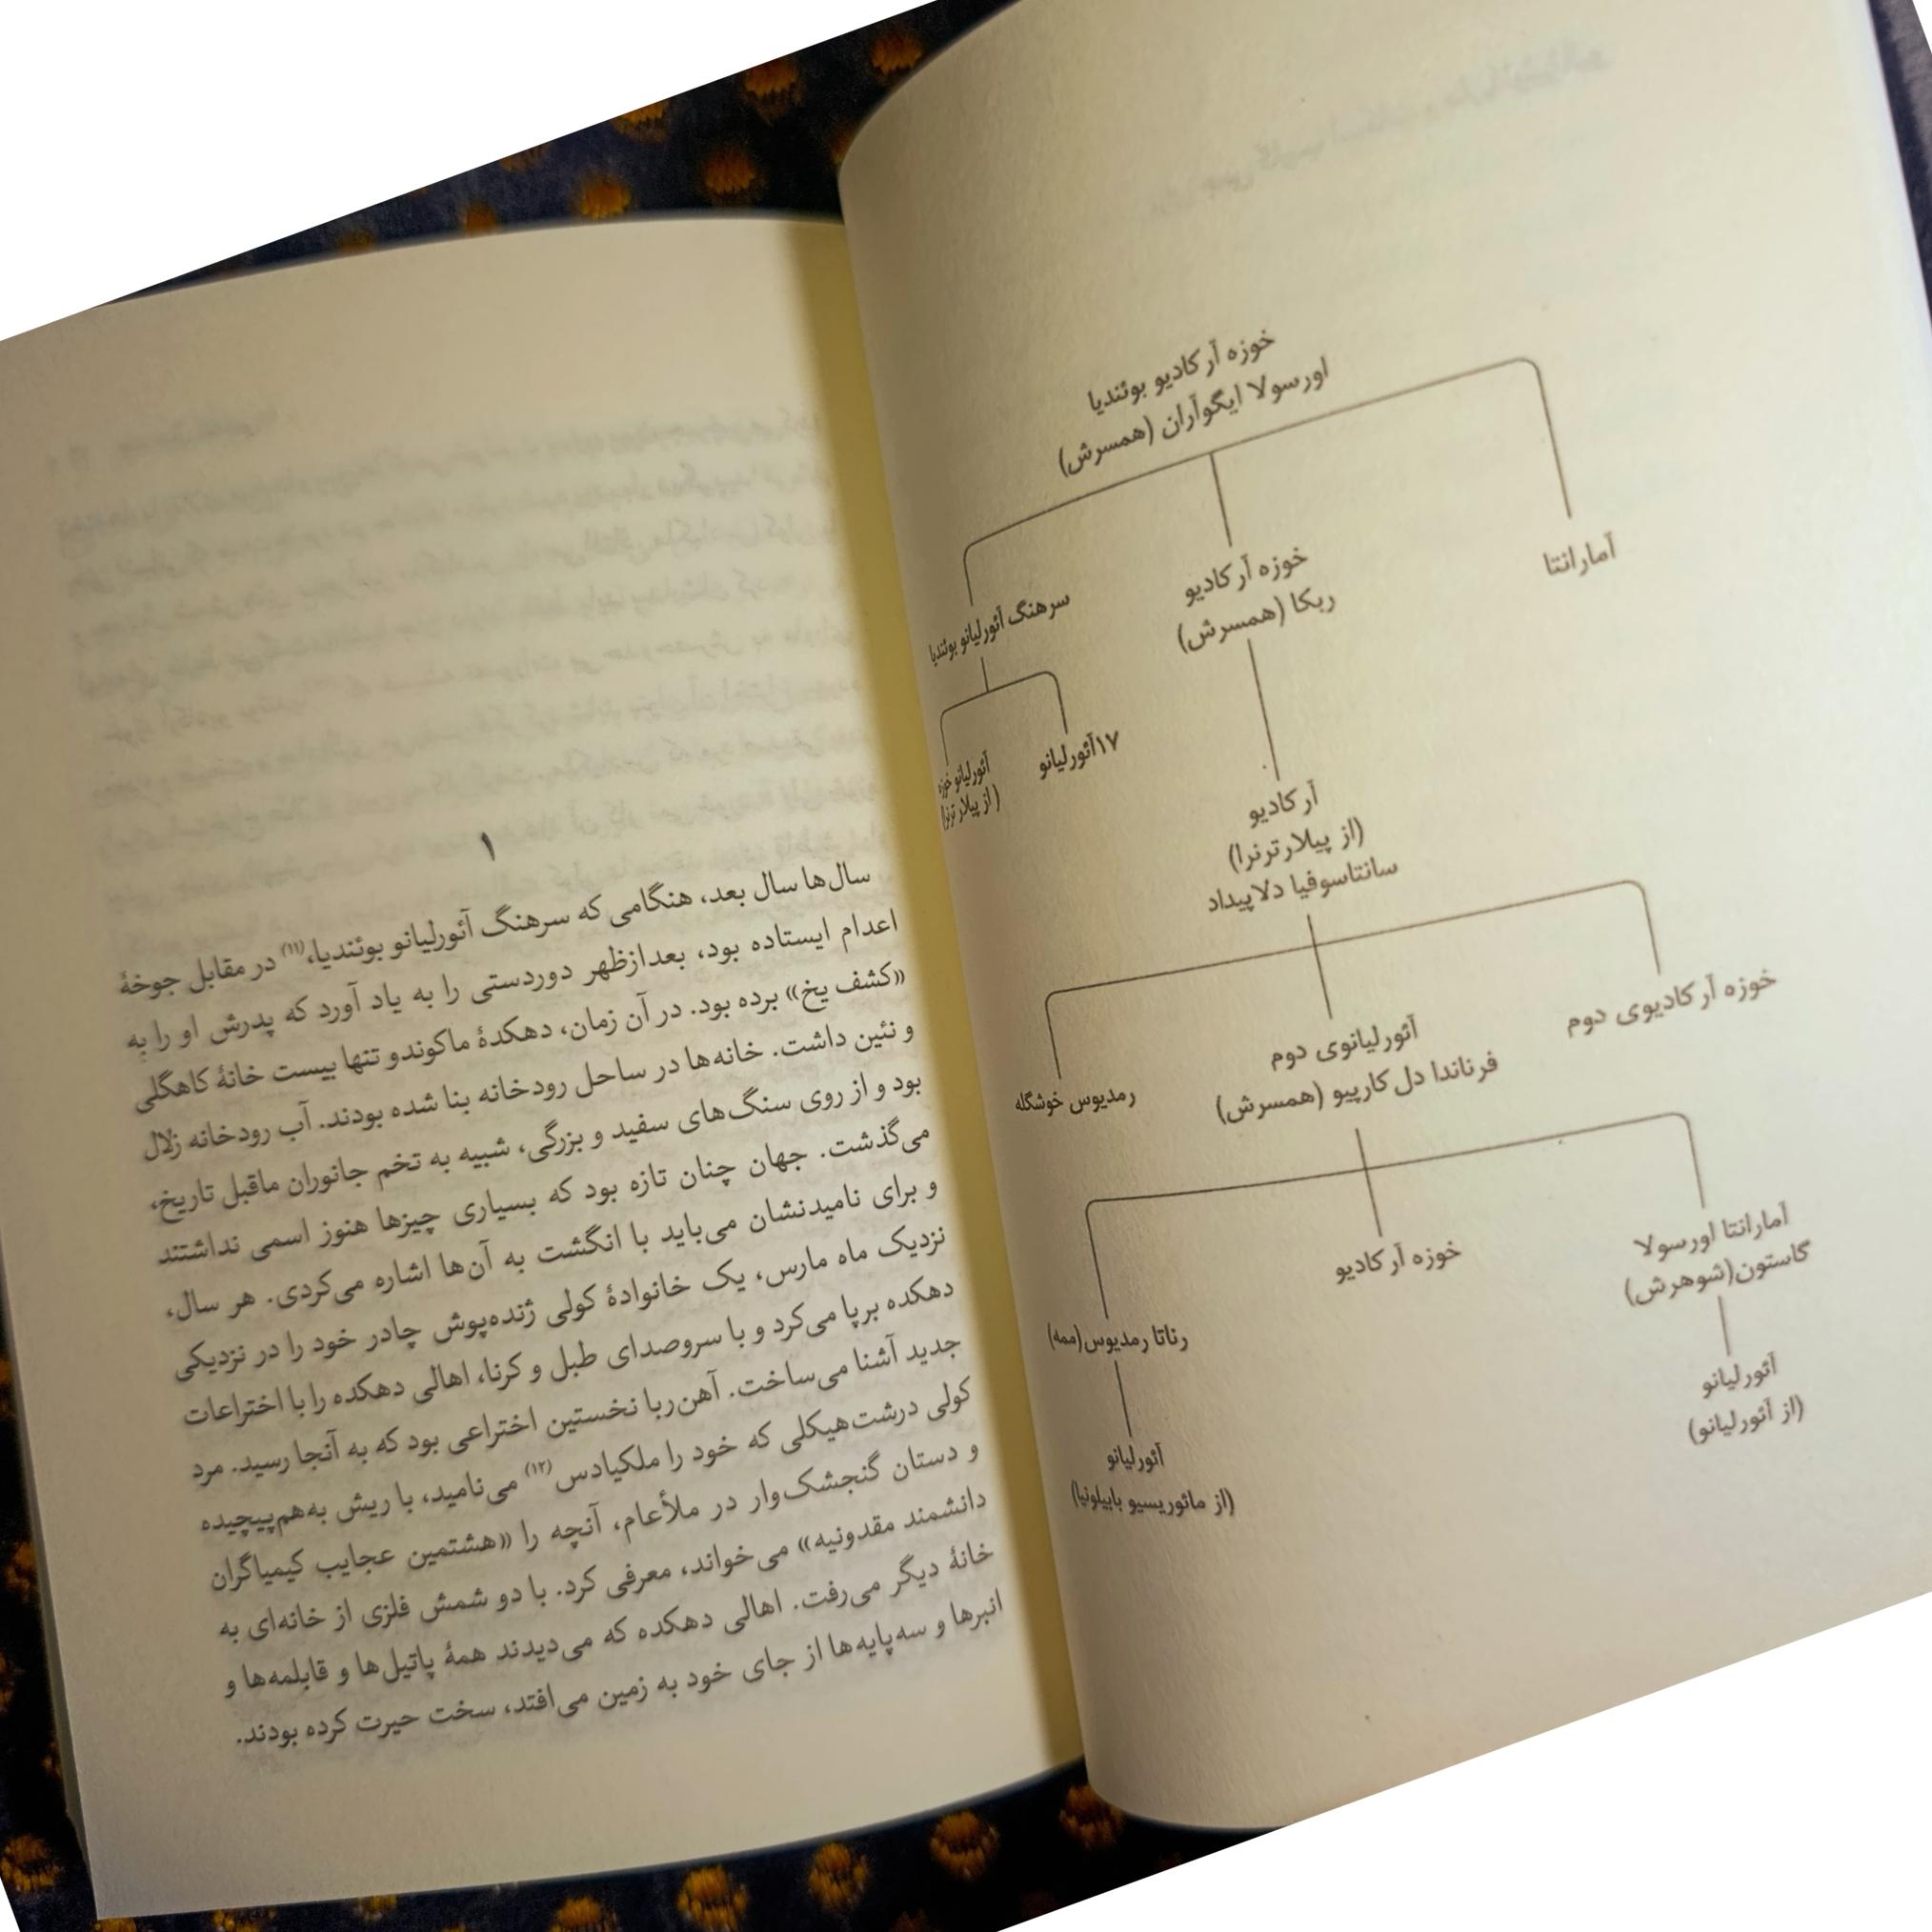 خوزه آرکادیو بوئندیا
اورسولا ایگوآران (همسرش)
آمارانتا
خوزه آرکادیو
ربکا (همسرش)
سرهنگ آئورلیانو بوئندیا
۱۷آئورلیانو
آئورلیانو خوزه
(از پیلار ترنرا)
آرکادیو
(از پیلارترنرا)
سانتاسوفیا دلاپیداد
خوزه آرکادیوی دوم
آئورلیانوی دوم
فرناندا دل کارپیو (همسرش)
رمدیوس خوشگله
آمارانتا اورسولا
گاستون(شوهرش)
خوزه آرکادیو
رناتا رمدیوس(ممه)
آئورلیانو
(از آئورلیانو)
آئورلیانو
(از مائوریسیو بابیلونیا)
۱
سال‌ها سال بعد، هنگامی که سرهنگ آئورلیانو بوئندیا،(۱۱) در مقابل جوخهٔ
اعدام ایستاده بود، بعدازظهر دوردستی را به یاد آورد که پدرش او را به
«کشف یخ» برده بود. در آن زمان، دهکدهٔ ماکوندو تنها بیست خانهٔ کاهگلی
و نئین داشت. خانه‌ها در ساحل رودخانه بنا شده بودند. آب رودخانه زلال
بود و از روی سنگ‌های سفید و بزرگی، شبیه به تخم جانوران ماقبل تاریخ،
می‌گذشت. جهان چنان تازه بود که بسیاری چیزها هنوز اسمی نداشتند
و برای نامیدنشان می‌باید با انگشت به آن‌ها اشاره می‌کردی. هر سال،
نزدیک ماه مارس، یک خانوادهٔ کولی ژنده‌پوش چادر خود را در نزدیکی
دهکده برپا می‌کرد و با سروصدای طبل و کرنا، اهالی دهکده را با اختراعات
جدید آشنا می‌ساخت. آهن‌ربا نخستین اختراعی بود که به آنجا رسید. مرد
کولی درشت‌هیکلی که خود را ملکیادس(۱۲) می‌نامید، با ریش به‌هم‌پیچیده
و دستان گنجشک‌وار در ملأعام، آنچه را «هشتمین عجایب کیمیاگران
دانشمند مقدونیه» می‌خواند، معرفی کرد. با دو شمش فلزی از خانه‌ای به
خانهٔ دیگر می‌رفت. اهالی دهکده که می‌دیدند همهٔ پاتیل‌ها و قابلمه‌ها و
انبرها و سه‌پایه‌ها از جای خود به زمین می‌افتد، سخت حیرت کرده بودند.